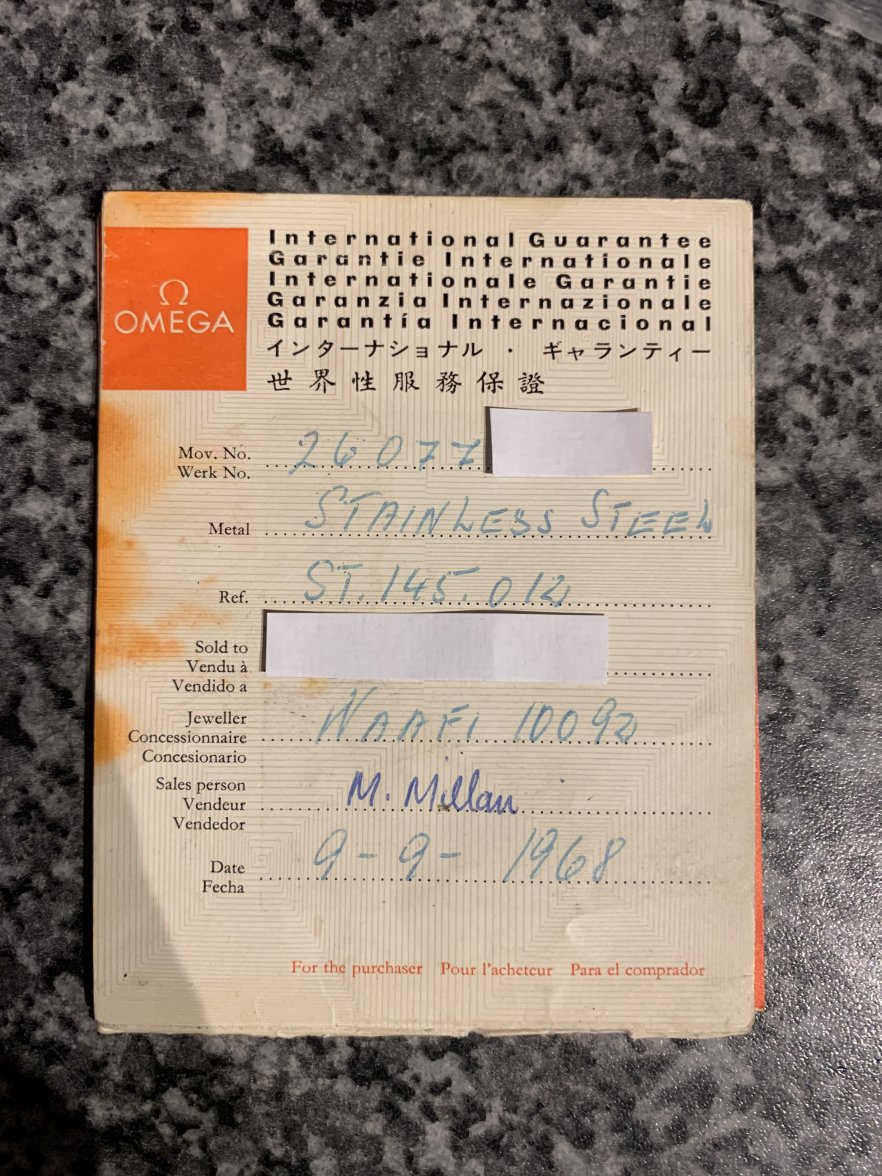 Ω
OMEGA
International Guarantee
Garantie Internationale
Internationale Garantie
Garanzia Internazionale
Garantía Internacional
インターナショナル・ギャランティー
世界性服務保證
Mov. No. 26077
Werk No.
Metal STAINLESS STEEL
Ref. ST.145.012
Sold to
Vendu à
Vendido a
Jeweller NAAFI 10092
Concessionnaire
Concesionario
Sales person M. Millan
Vendeur
Vendedor
Date 9-9-1968
Fecha
For the purchaser Pour l'acheteur Para el comprador